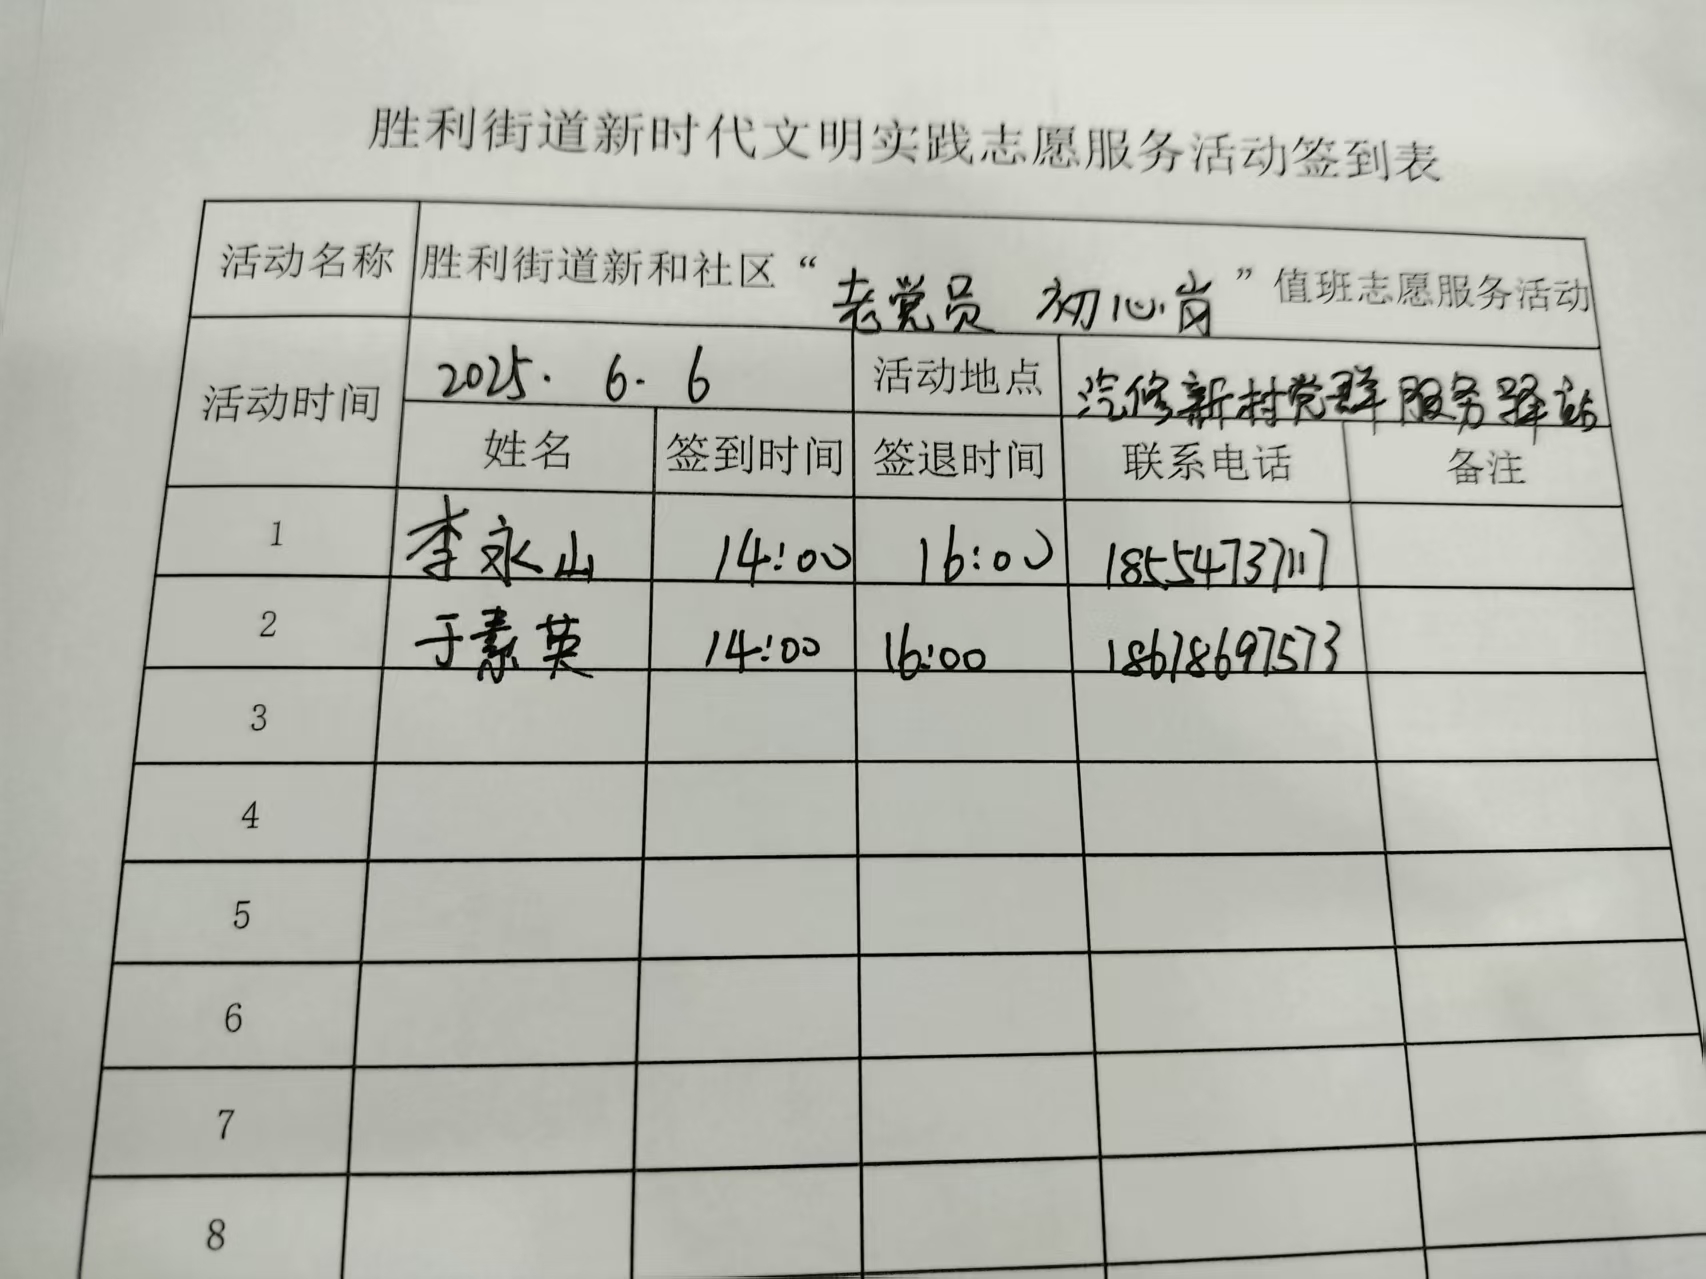 胜利街道新时代文明实践志愿服务活动签到表
活动名称 胜利街道新和社区“老党员 初心岗”值班志愿服务活动
活动时间 2025.6.6 活动地点 汽修新村党群服务驿站
姓名 签到时间 签退时间 联系电话 备注
1 李永山 14:00 16:00 18554737117
2 于素英 14:00 16:00 18678697573
3
4
5
6
7
8